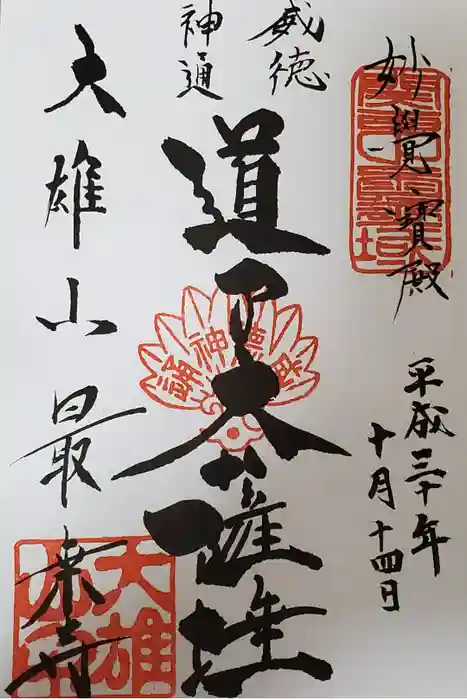 妙覺寳殿
平成三十年
十月十四日
威徳
神通
道了大薩埵
大雄山最乗寺